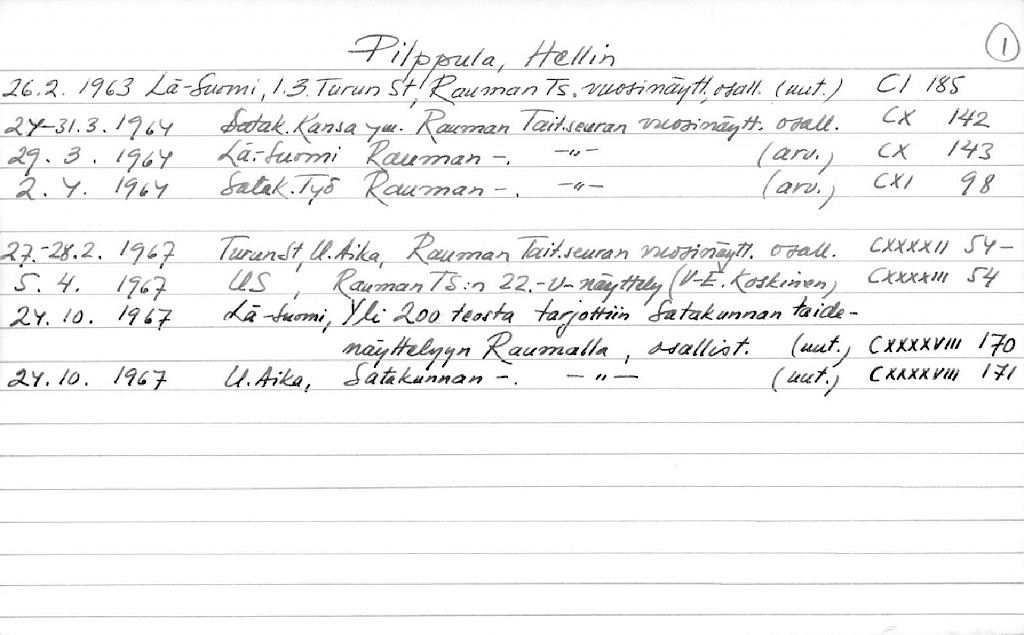 1
Pilppula, Hellin
26.2. 1963 Lä-Suomi, 1.3. Turun St, Rauman Ts. vuosinäytt. osall. (uut.) CI 185
24-31.3. 1964 Satak. Kansa ym. Rauman Tait.seuran vuosinäytt. osall. CX 142
29. 3. 1964 Lä-Suomi Rauman -. -"- (arv.) CX 143
2. 4. 1964 Satak. Työ Rauman -. -"- (arv.) CXI 98
27.-28.2. 1967 Turun St, U.Aika, Rauman Tait.seuran vuosinäytt. osall. CXXXXII 54-
5. 4. 1967 US, Rauman TS:n 22.-v-näyttely (V-E. Koskinen) CXXXXIII 54
24. 10. 1967 Lä-Suomi, Yli 200 teosta tarjottiin Satakunnan taide-
näyttelyyn Raumalla, osallist. (uut.) CXXXXVIII 170
24. 10. 1967 U.Aika, Satakunnan -. -"- (uut.) CXXXXVIII 171